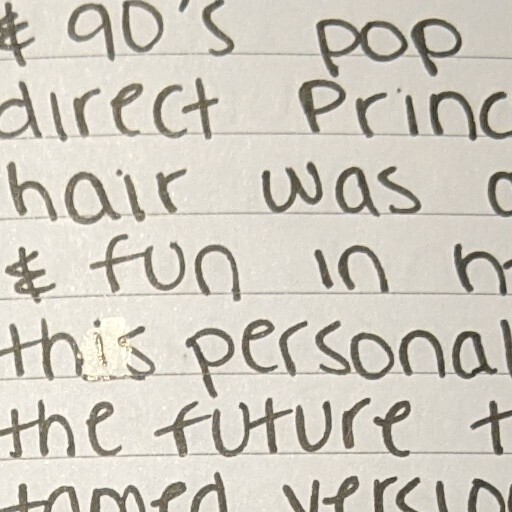 & 90's pop
direct Princ
hair was
& fun in
this personal
the future t
tamed versio